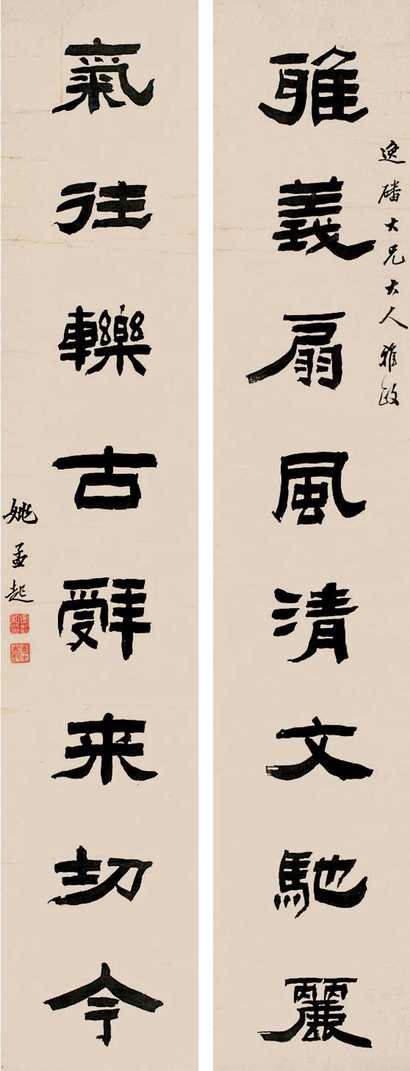 逸磻大兄大人雅政
雅義扇風清文馳麗
氣往轢古辭来切今
姚孟起